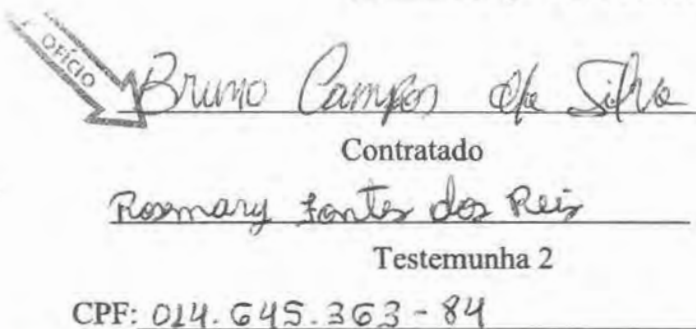 OFÍCIO
Bruno Campos da Silva
Contratado
Rosmary Fontes dos Reis
Testemunha 2
CPF: 014.645.363-84